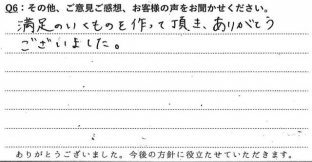 Q6：その他、ご意見ご感想、お客様の声をお聞かせください。
満足のいくものを作って頂き、ありがとう
ございました。
ありがとうございました。今後の方針に役立たせていただきます。